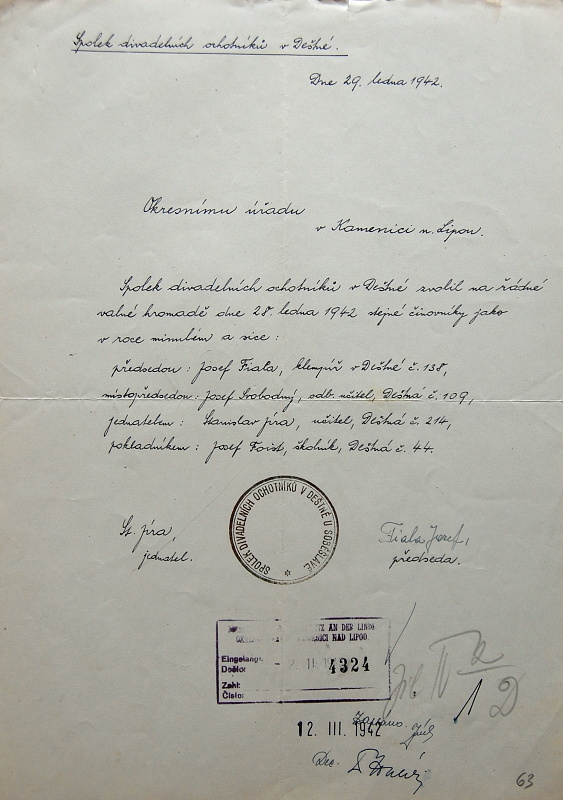 Spolek divadelních ochotníků v Deštné.
Dne 29. ledna 1942.
Okresnímu úřadu
v Kamenici n. Lipou.
Spolek divadelních ochotníků v Deštné zvolil na řádné
valné hromadě dne 28. ledna 1942 stejné činovníky jako
v roce minulém a sice:
předsedou: Josef Fiala, klempíř v Deštné č. 138,
místopředsedou: Josef Svobodný, odb. učitel, Deštná č. 109,
jednatelem: Stanislav Jíra, učitel, Deštná č. 214,
pokladníkem: Josef Foist, školník, Deštná č. 44.
SPOLEK DIVADELNÍCH OCHOTNÍKŮ V DEŠTNÉ U SOBĚSLAVĚ
St. Jíra,
jednatel.
Fiala Josef,
předseda.
AN DER LINDE
NAD LIPOU
Eingelangt
Došlo:
4324
Zahl:
Číslo:
12. III. 1942
63